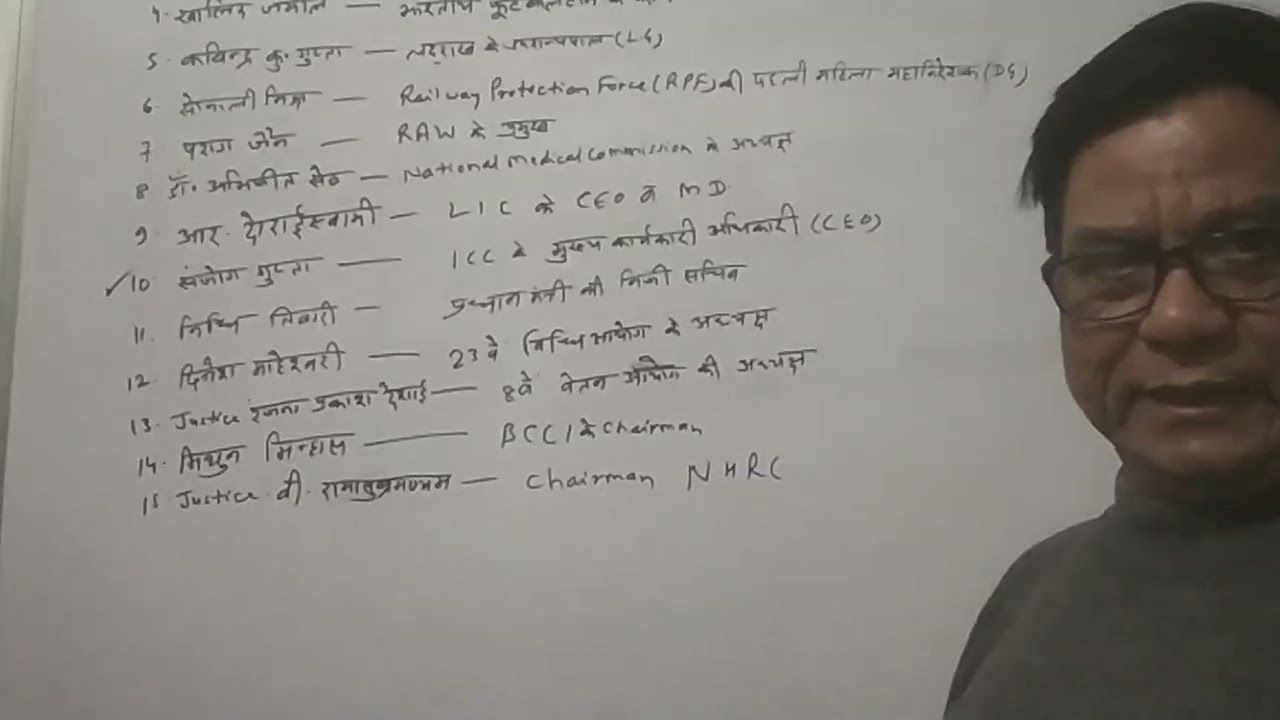 4. खालिद जमील — भारतीय
5. कविन्द्र कु. गुप्ता — लद्दाख के उपराज्यपाल (LG)
6. सोनाली मिश्रा — Railway Protection Force (RPF) की पहली महिला महानिदेशक (DG)
7 पराग जैन — RAW के प्रमुख
8 डॉ. अभिजीत सेठ — National Medical Commission के अध्यक्ष
9. आर. दोराईस्वामी — LIC के CEO व MD.
✓10 संजोग गुप्ता — ICC के मुख्य कार्यकारी अधिकारी (CEO)
11. निधि तिवारी — प्रधान मंत्री की निजी सचिव
12. दिनेश माहेश्वरी — 23वे विधि आयोग के अध्यक्ष
13. Justice रंजना प्रकाश देसाई — 8वे वेतन आयोग की अध्यक्ष
14. मिथुन मिन्हास — BCCI के Chairman
15 Justice. वी. रामासुब्रमण्यम — Chairman NHRC